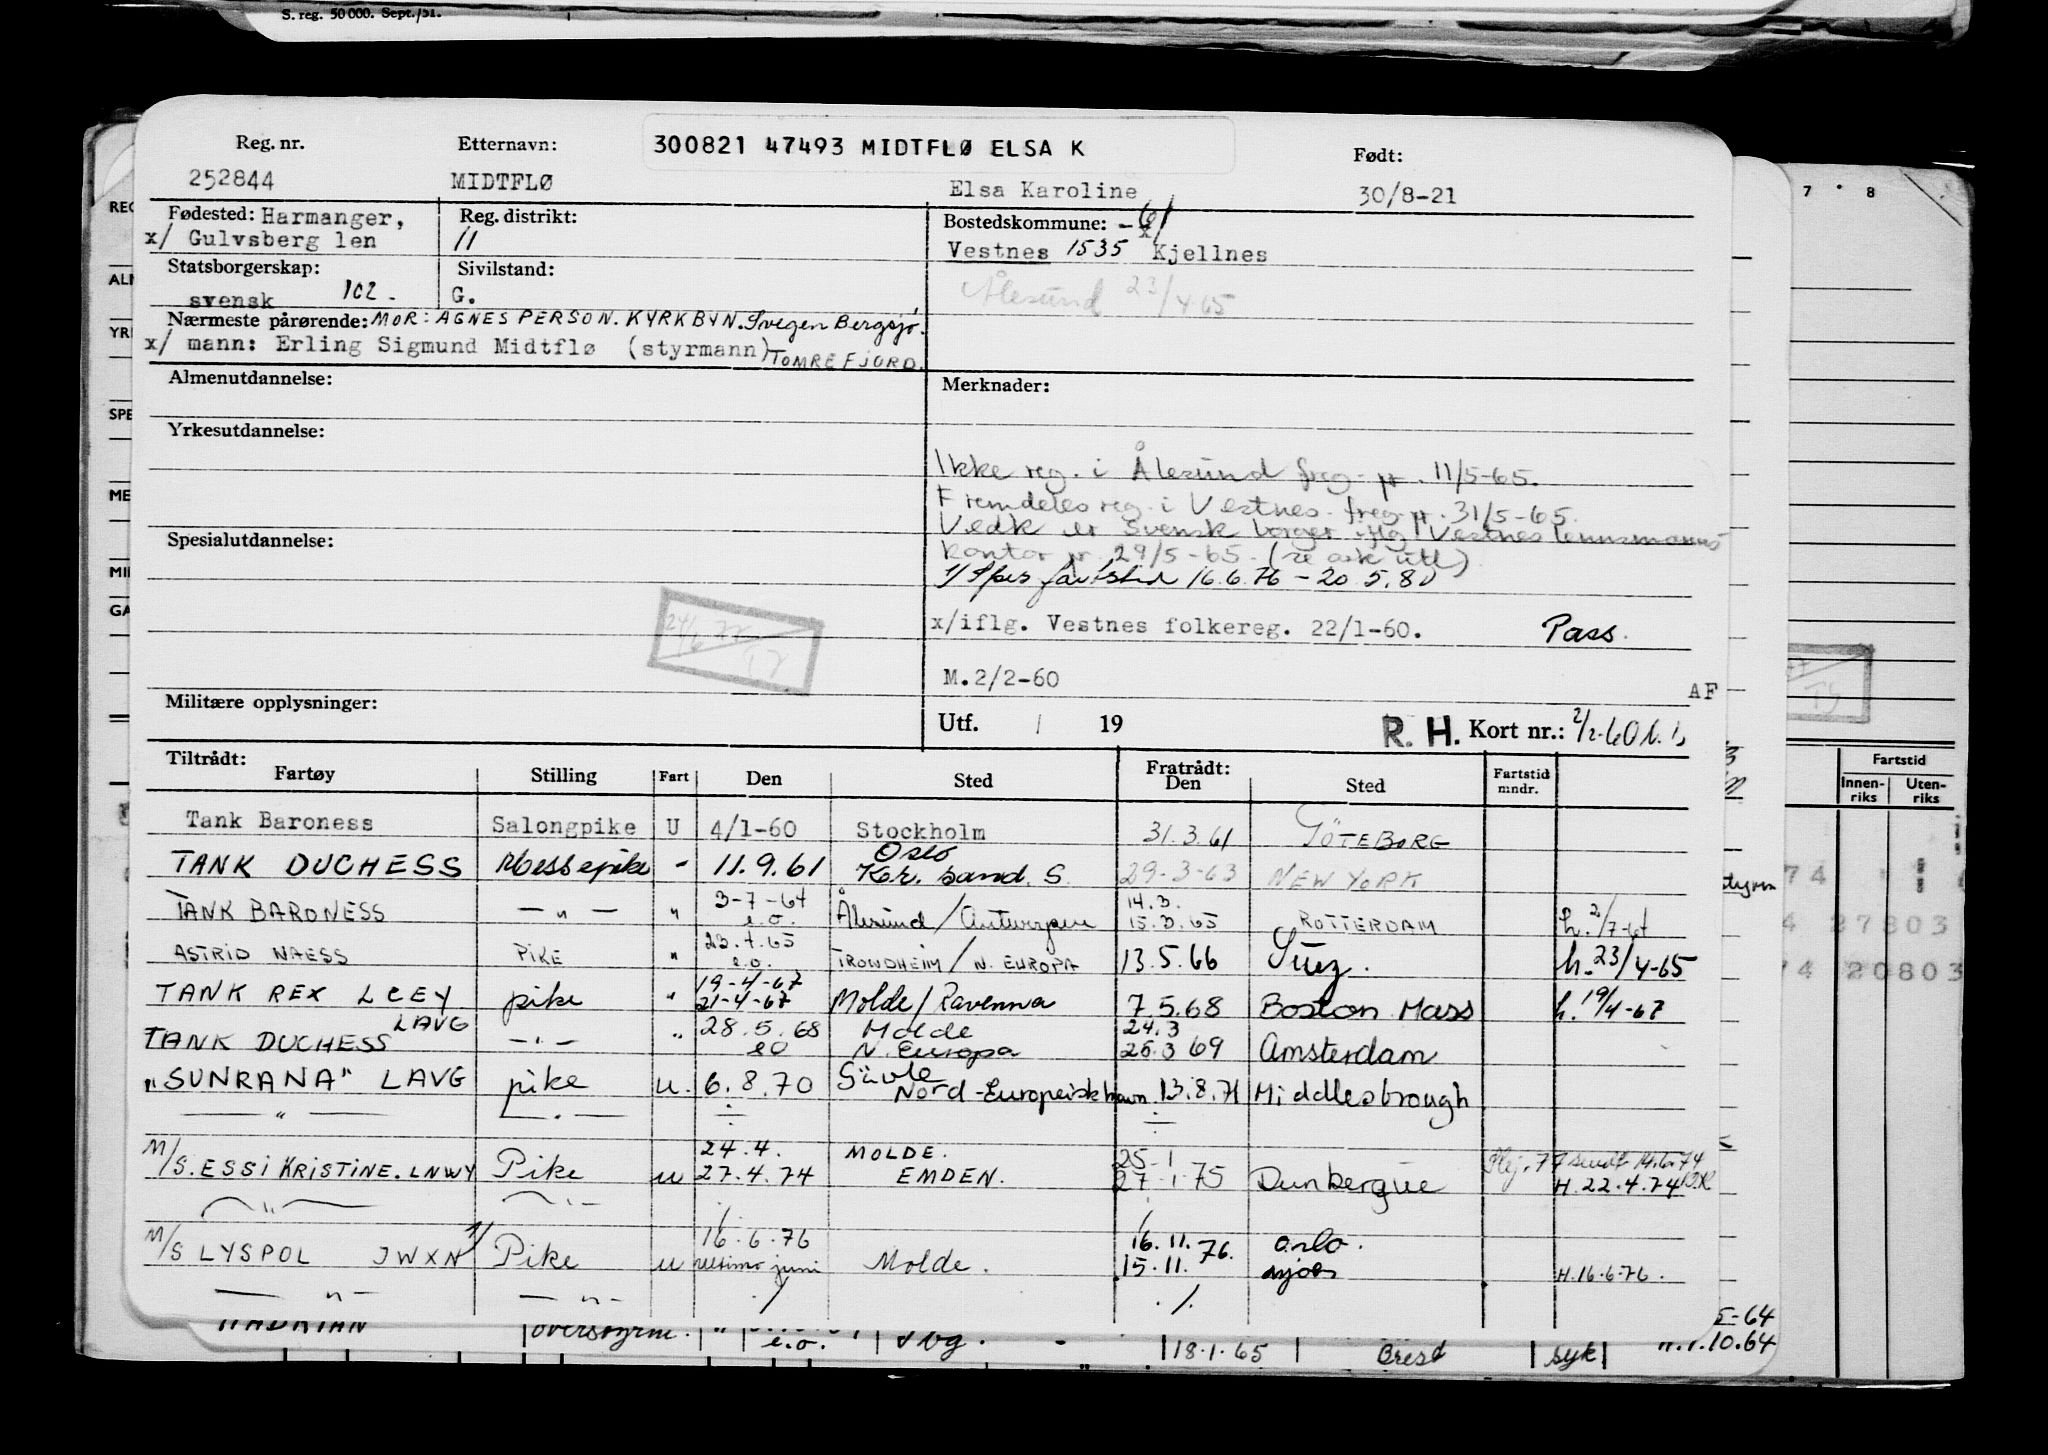 S. reg. 50 000. Sept./51.
Reg. nr. Etternavn: 300821 47493 MIDTFLØ ELSA K Født:
252844 MIDTFLØ Elsa Karoline 30/8-21
Fødested: Harmanger, Reg. distrikt: Bostedskommune: -61
x/ Gulvsberg len 11 Vestnes 1535 x/ Kjellnes
Statsborgerskap: Sivilstand: Ålesund 23/4-65
svensk 102- G.
Nærmeste pårørende: MOR: AGNES PERSON. KYRKBYN. Svegen Bergsjø.
x/ mann: Erling Sigmund Midtflø (styrmann) TOMREFJORD.
Almenutdannelse: Merknader:
Yrkesutdannelse:
Ikke reg. i Ålesund freg. pr. 11/5-65.
Fremdeles reg. i Vestnes freg. pr. 31/5-65.
Vedk er Svensk borger iflg Vestnes lennsmanns
Spesialutdannelse:
kontor pr. 29/5-65. (se ark utl)
1/ fartstid 16.6.76 - 20.5.80
x/iflg. Vestnes folkereg. 22/1-60. Pass.
24/6 77
M.2/2-60
AF
Militære opplysninger: Utf. / 19 R. H. Kort nr.: 2/2-60
Tiltrådt: Fratrådt:
Fartøy Stilling Fart Den Sted Den Sted Fartstid mndr.
Tank Baroness Salongpike U 4/1-60 Stockholm 31.3.61 GÖTEBORG
TANK DUCHESS Messepike - 11.9.61 Oslo Kr. sand. S. 29-3-63 NEW YORK
TANK BARONESS — " — " 3-7-64 e.o. Ålesund / Antwerpen 14.3. 15.3.65 ROTTERDAM h. 2/7-64
ASTRID NAESS PIKE " 23.4.65 e.o. TRONDHEIM / N. EUROPA 13.5.66 Suez. h. 23/4-65
TANK REX LCEY pike " 19-4-67 21-4-67 Molde / Ravenna 7.5.68 Boston Mass h. 19/4-67
TANK DUCHESS LAVG — " — " 28.5.68 eo Molde N. Europa 24.3 26.3 69 Amsterdam
"SUNRANA" LAVG pike u. 6.8.70 Gävle Nord-Europeisk havn 13.8.71 Middlesbrough
— " — — " —
M/S. ESSI KRISTINE. LNWY Pike u 24.4. 27.4.74 MOLDE. EMDEN. 25-1 27-1-75 Dunkerque 77 sendt 14.6.74 H. 22.4.74
— " — — " —
M/S LYSPOL JWXN 1/ Pike u 16.6.76 ultimo juni Molde. 16.11. 15.11. 76. Oslo. H. 16.6.76.
— " — — " —
HADRIAN overstyrm. " e.o. 18.1.65 Brest syk 10.64
7 8
Fartstid
Innen-riks Uten-riks
27803
20803